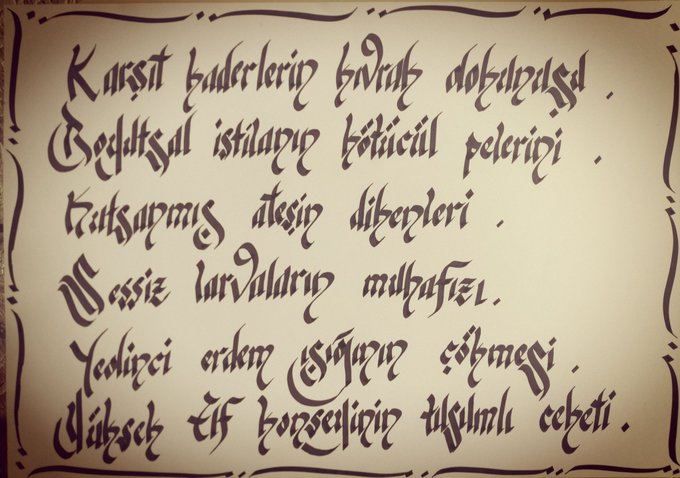 Karşıt kaderlerin kıvrak dokunuşu .
Boyutsal istilanın kötücül pelerini .
Kutsanmış ateşin dikenleri .
Sessiz larvaların muhafızı.
Yedinci erdem ışığının çökmesi .
Yüksek Elf konseyinin tılsımlı ceketi .